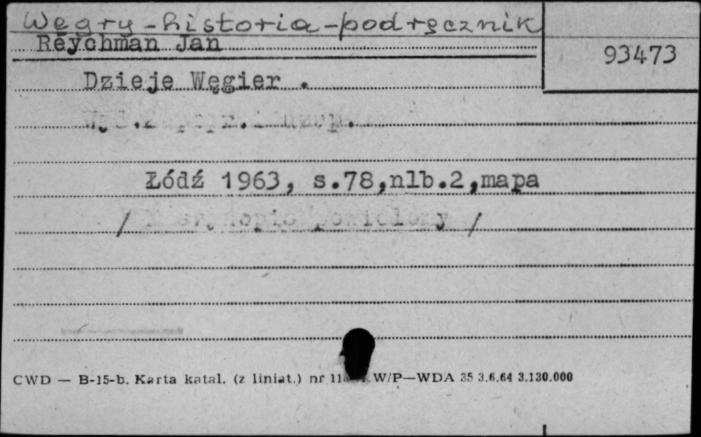 Węgry - historia - podręcznik
Reychman Jan
93473
Dzieje Węgier .
Łódź 1963, s.78,nlb.2,mapa
/ /
CWD — B-15-b. Karta katal. (z liniat.) nr W/P—WDA 35 3.6.64 3.130.000